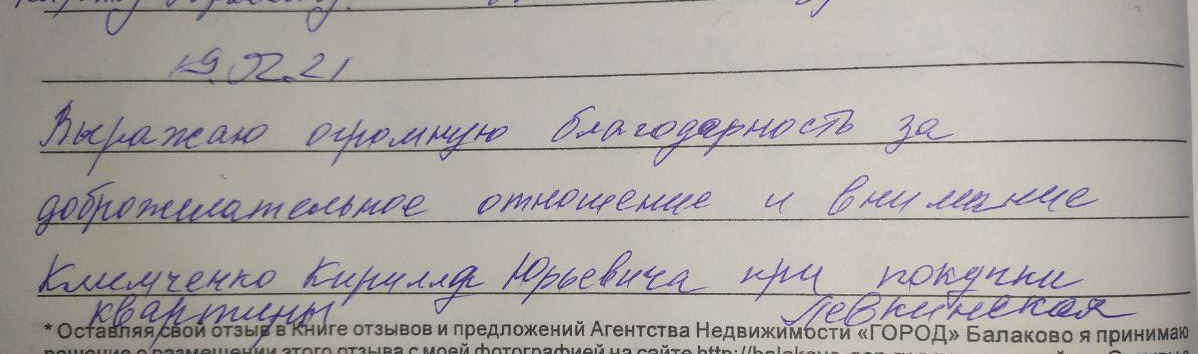 19.02.21
Выражаю огромную благодарность за
доброжелательное отношение и внимание
Климченко Кирилла Юрьевича при покупки
квартиры Левкинская
* Оставляя свой отзыв в Книге отзывов и предложений Агентства Недвижимости «ГОРОД» Балаково я принимаю
решение о размещении этого отзыва с моей фотографией на сайте